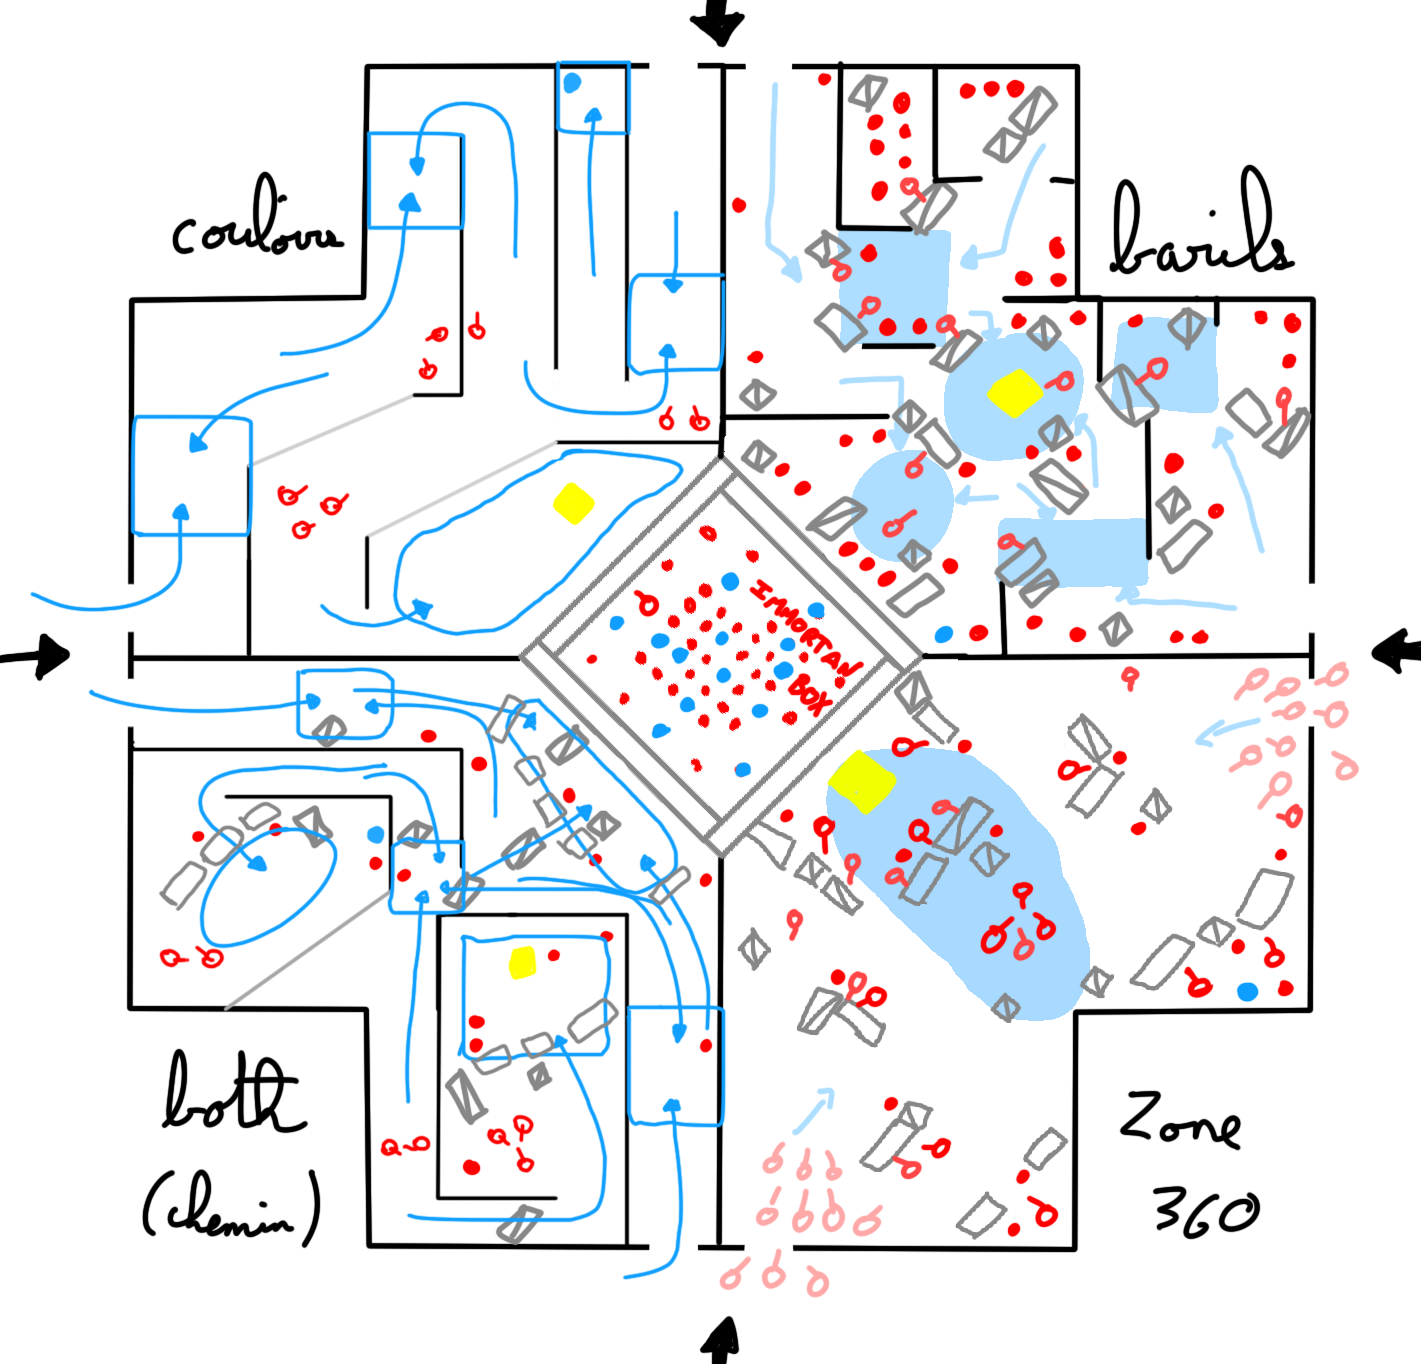 couloirs
barils
IMMORTAN
BOX
both
(chemin)
Zone
360